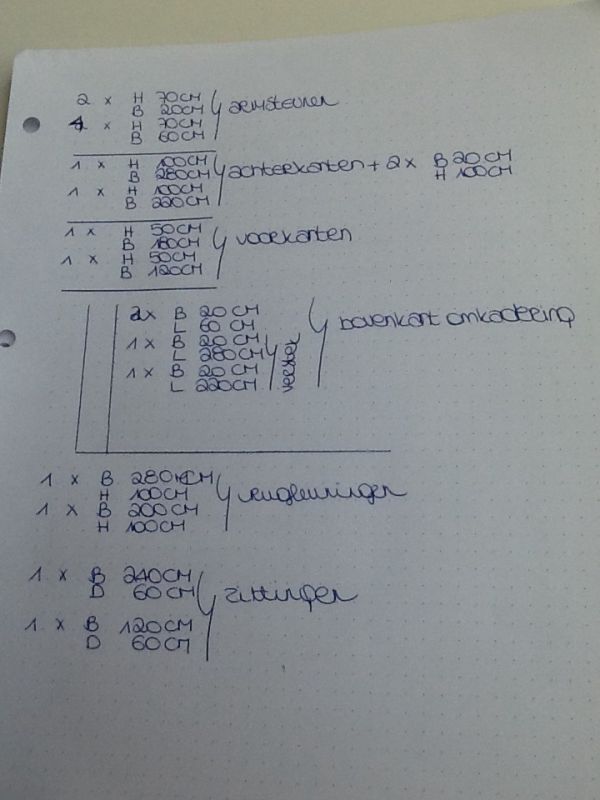 2 x H 70CM armsteunen
B 20CM
4 x H 70CM
B 60CM
1 x H 100CM achterkanten + 2x B 20CM
B 280CM H 100CM
1 x H 100CM
B 220CM
1 x H 50CM voorkanten
B 180CM
1 x H 50CM
B 120CM
2x B 20CM bovenkant omkadering
L 60CM
1 x B 20CM
L 280CM
1 x B 20CM
L 220CM
1 x B 280CM rugleuningen
H 100CM
1 x B 200CM
H 100CM
1 x B 240CM zittingen
D 60CM
1 x B 120CM
D 60CM